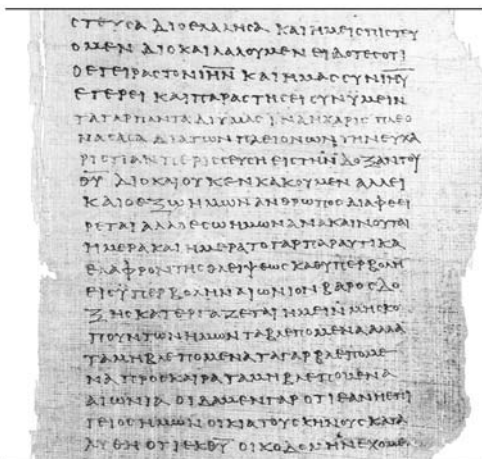 ϹΤΕΥϹΑ ΔΙΟ ΕΛΑΛΗϹΑ ΚΑΙ ΗΜΕΙϹ ΠΙϹΤΕΥ
ΟΜΕΝ ΔΙΟ ΚΑΙ ΛΑΛΟΥΜΕΝ ΕΙΔΟΤΕϹ ΟΤΙ
Ο ΕΓΕΙΡΑϹ ΤΟΝ ΙΗΝ ΚΑΙ ΗΜΑϹ ϹΥΝ ΙΗΥ
ΕΓΕΡΕΙ ΚΑΙ ΠΑΡΑϹΤΗϹΕΙ ϹΥΝ ΥΜΕΙΝ
ΤΑ ΓΑΡ ΠΑΝΤΑ ΔΙ ΥΜΑϹ ΙΝΑ Η ΧΑΡΙϹ ΠΛΕΟ
ΝΑϹΑϹΑ ΔΙΑ ΤΩΝ ΠΛΕΙΟΝΩΝ ΤΗΝ ΕΥΧΑ
ΡΙϹΤΙΑΝ ΠΕΡΙϹϹΕΥϹΗ ΕΙϹ ΤΗΝ ΔΟΞΑΝ ΤΟΥ
ΘΥ ΔΙΟ ΚΑΙ ΟΥΚ ΕΝΚΑΚΟΥΜΕΝ ΑΛΛ ΕΙ
ΚΑΙ Ο ΕΞΩ ΗΜΩΝ ΑΝΘΡΩΠΟϹ ΔΙΑΦΘΕΙ
ΡΕΤΑΙ ΑΛΛ Ο ΕϹΩ ΗΜΩΝ ΑΝΑΚΑΙΝΟΥΤΑΙ
ΗΜΕΡΑ ΚΑΙ ΗΜΕΡΑ ΤΟ ΓΑΡ ΠΑΡΑΥΤΙΚΑ
ΕΛΑΦΡΟΝ ΤΗϹ ΘΛΕΙΨΕΩϹ ΚΑΘ ΥΠΕΡΒΟΛΗ
ΕΙϹ ΥΠΕΡΒΟΛΗΝ ΑΙΩΝΙΟΝ ΒΑΡΟϹ ΔΟ
ΞΗϹ ΚΑΤΕΡΓΑΖΕΤΑΙ ΗΜΕΙΝ ΜΗ ϹΚΟ
ΠΟΥΝΤΩΝ ΗΜΩΝ ΤΑ ΒΛΕΠΟΜΕΝΑ ΑΛΛΑ
ΤΑ ΜΗ ΒΛΕΠΟΜΕΝΑ ΤΑ ΓΑΡ ΒΛΕΠΟΜΕ
ΝΑ ΠΡΟϹΚΑΙΡΑ ΤΑ ΜΗ ΒΛΕΠΟΜΕΝΑ
ΑΙΩΝΙΑ ΟΙΔΑΜΕΝ ΓΑΡ ΟΤΙ ΕΑΝ Η ΕΠΙ
ΓΕΙΟϹ ΗΜΩΝ ΟΙΚΙΑ ΤΟΥ ϹΚΗΝΟΥϹ ΚΑΤΑ
ΛΥΘΗ ΟΤΙ ΕΚ ΘΥ ΟΙΚΟΔΟΜΗΝ ΕΧΟΜΕ